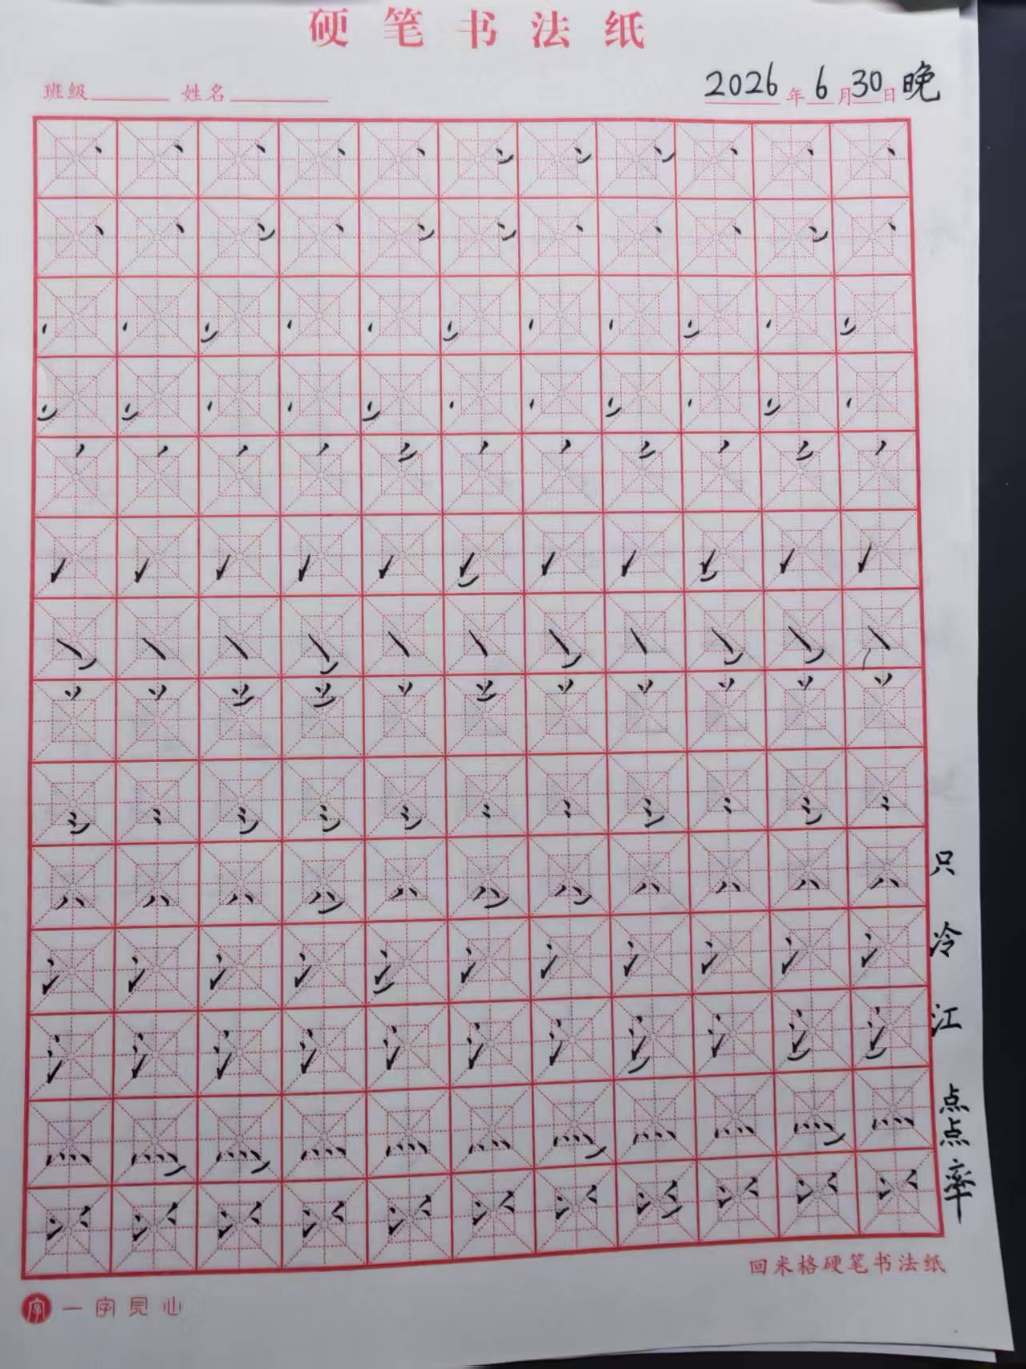 硬笔书法纸
班级 姓名 2026年6月30日晚
只
冷
江
点
点
率
回米格硬笔书法纸
一字见心